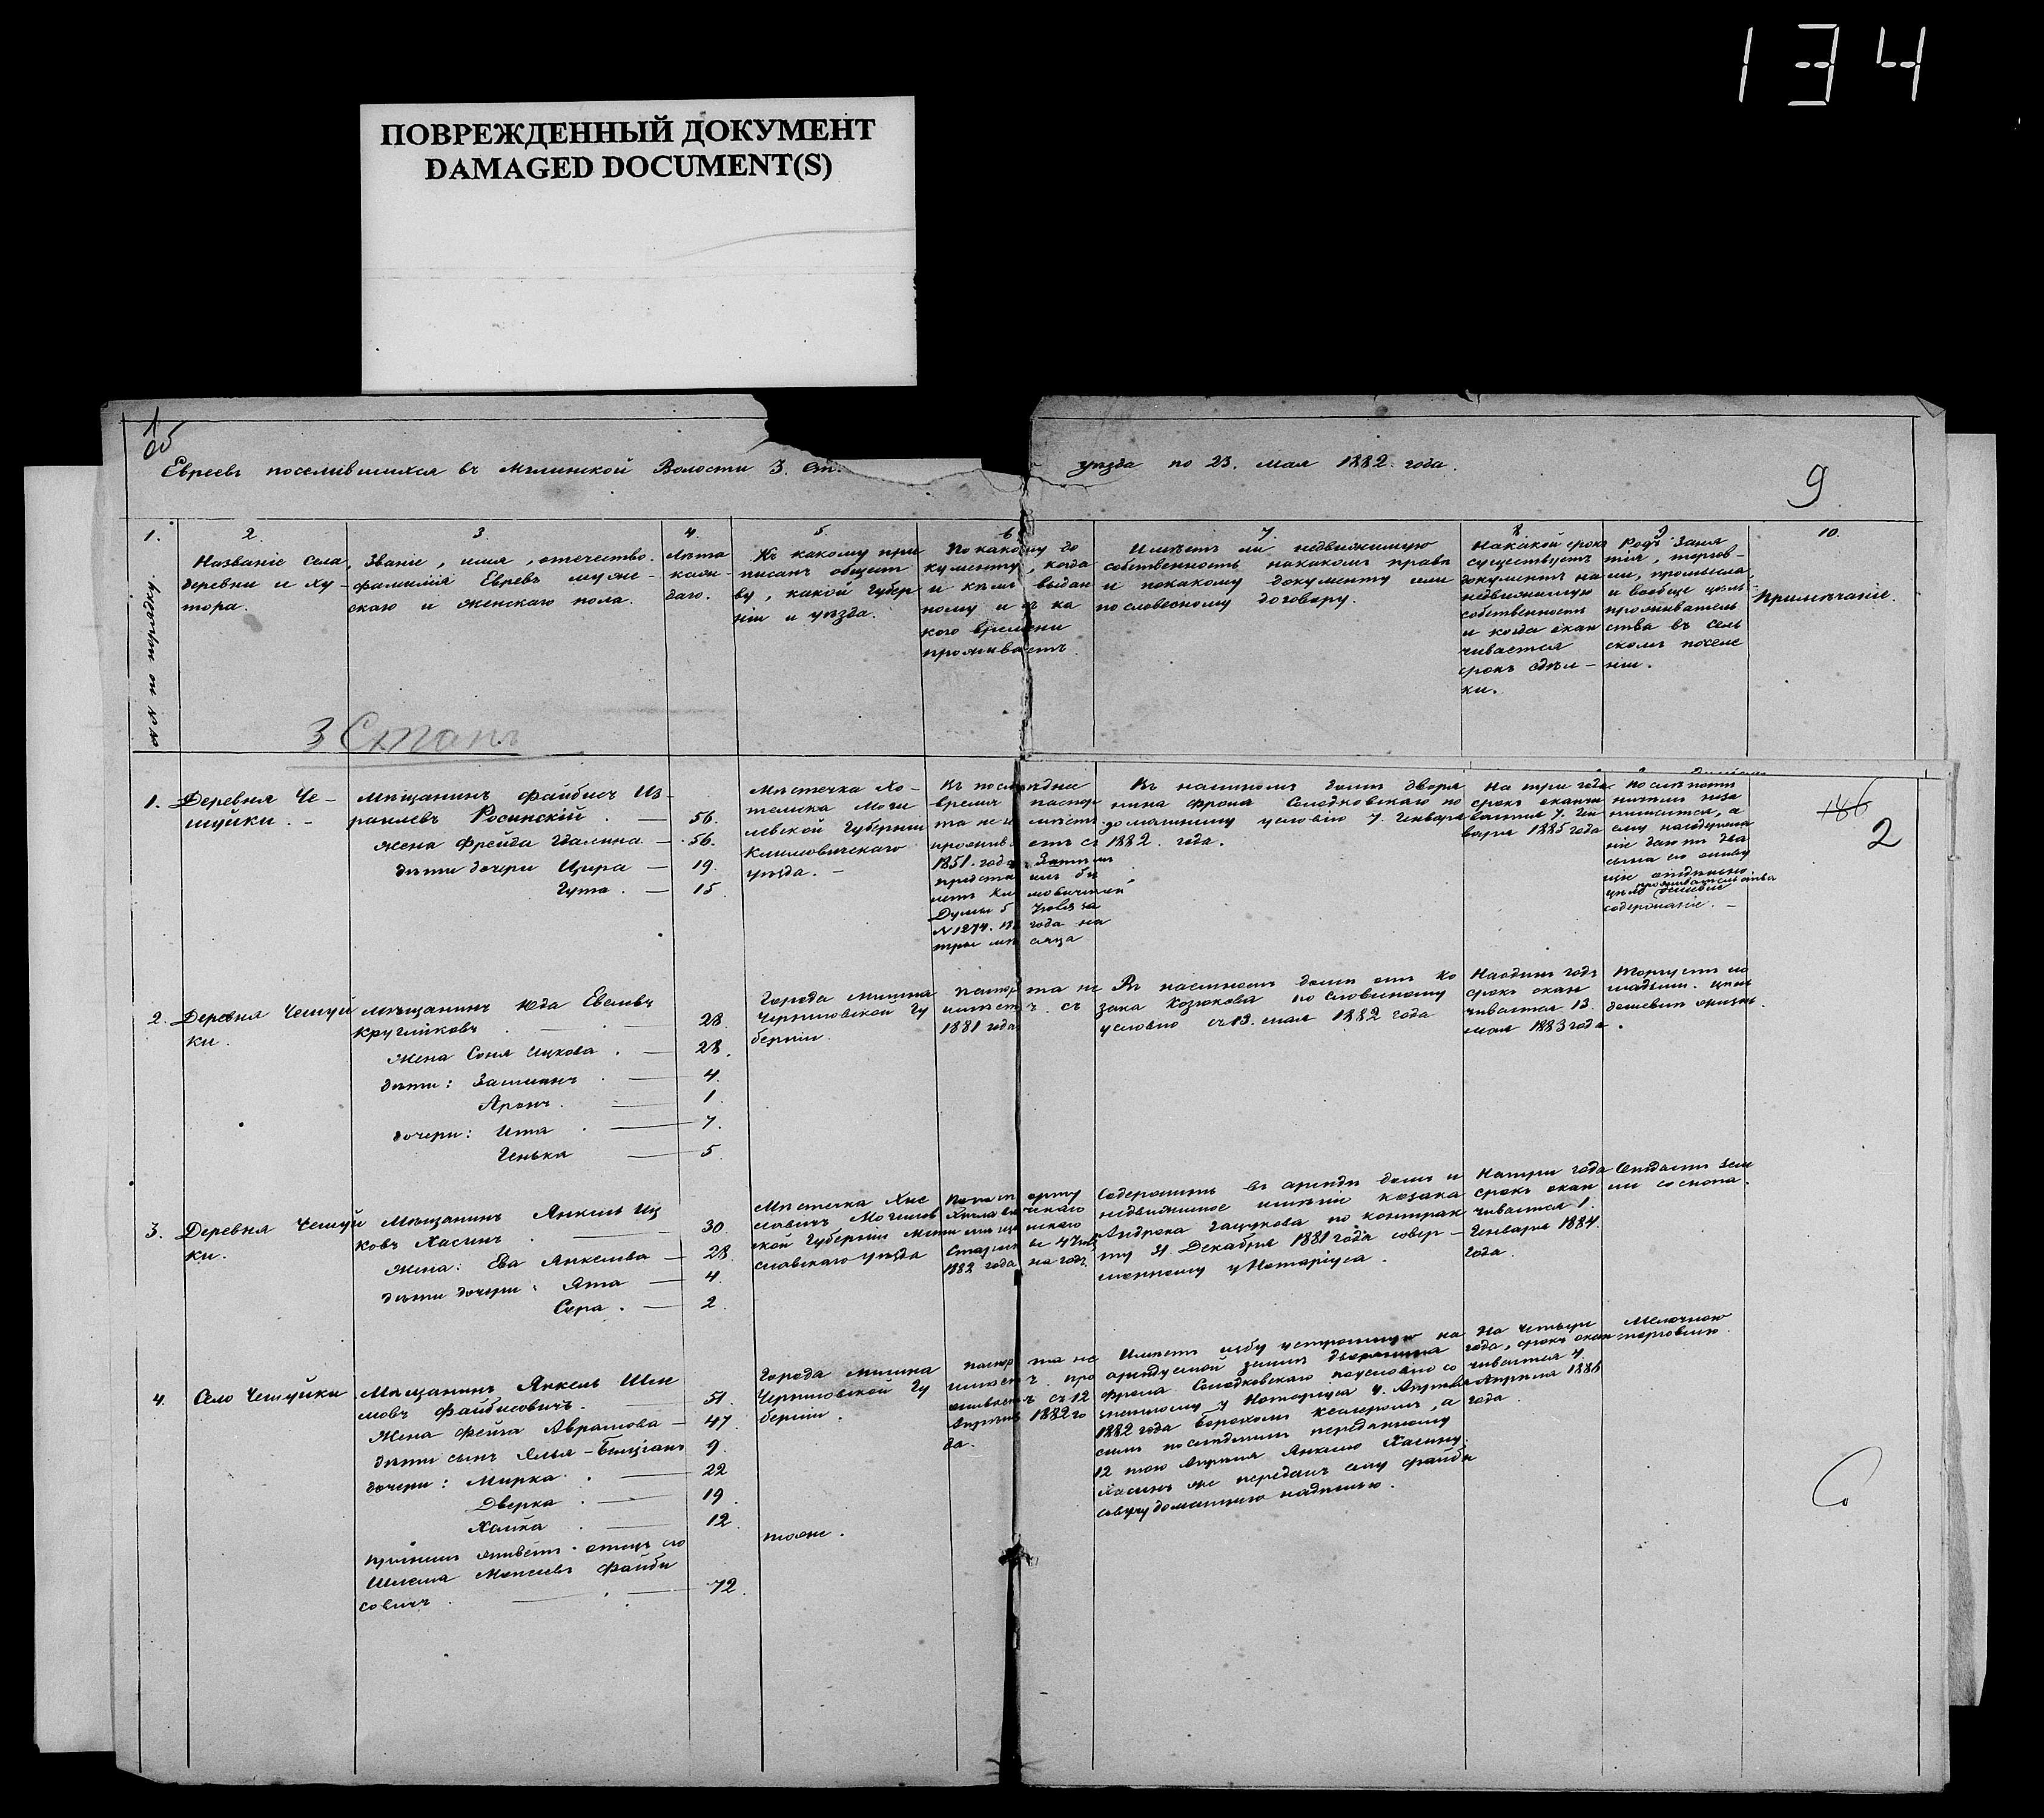 134
ПОВРЕЖДЕННЫЙ ДОКУМЕНТ
DAMAGED DOCUMENT(S)
Евреевъ поселившихся въ Мглинской Волости 3. Ст.
уѣзда по 23. мая 1882. года.
9
1.
№№ по порядку
2.
Названіе села,
деревни и ху-
тора.
3.
Званіе, имя, отечество.
фамилія Евревъ муже-
скаго и женскаго пола.
4.
Лѣта
кажа-
даго.
5.
Къ какому при
писанъ общест
ву, какой Губер
ніи и уѣзда.
6
По какому до
кументу, когда
и кѣмъ выдан
ному и съ ка
кого времени
проживаетъ.
7.
Имѣетъ ли недвижимую
собственность на какомъ правѣ
и по какому документу или
по словесному договору.
8.
На какой срокъ
существуетъ
документъ на
недвижимую
собственность
и когда окан
чивается
срокъ сдѣл-
ки.
9.
Родъ заня
тія, торгов-
ли, промысла,
и вообще цѣль
проживатель
ства въ сель
скомъ поселе
ніи.
10.
Примѣчаніе.
3 Станъ
1.
Деревня Че-
шуйки.
Мѣщанинъ Файбисъ Из-
раилевъ Росинскій. — 56.
жена Фрейда — 56.
дѣти дочери Цира — 19.
Гута. — 15
Мѣстечка Хо-
тимска Моги
левской Губерніи
Климовичскаго
уѣзда. —
Въ послѣднее
время паспор
та не имѣетъ
проживаетъ съ
1851. года. Затѣмъ
представилъ би
летъ Климовичской
Думы 5
№ 1274. года на
три мѣсяца
Въ наемномъ домѣ дворя
нина Фрола Солодковскаго по
домашнему условію 7. Генваря
1882. года.
На три года
срокъ оканчи
вается 7. Ген
варя 1885 года
содержаніе. —
186
2
2.
Деревня Чешуй
ки.
мѣщанинъ Юда
Кругликовъ. — 28.
Жена Соня Ицкова. — 28.
дѣти: Залманъ. — 4.
Аронъ. — 1.
дочери: Ита. — 7.
Генька — 5.
Города Мглина
Черниговской Гу
берніи.
Паспорта не
имѣетъ. съ
1881 года
Въ наемномъ домѣ отъ ко
зака Козюкова по словесному
условію съ 13. мая 1882 года
На одинъ годъ
срокъ окан
чивается 13.
мая 1883 года.
Торгуетъ ло
шадьми. цѣль
дешевая жизнь.
3.
Деревня Чешуй
ки.
Мѣщанинъ Янкель Иц
ковъ Хасинъ. — 30.
Жена: Ева Янкелева — 28
дѣти дочери: Ята — 4.
Сора. — 2.
Мѣстечка Хис
лавичъ Могилев
ской Губерніи Мсти
славскаго уѣзда
По паспорту
Хиславичскаго
мѣщанскаго
1882 года на годъ.
Содержитъ въ арендѣ домъ и
недвижимое имѣніе козака
Андрона Гащукова по контрак
ту 31 Декабря 1881 года совер-
шенному у Нотаріуса.
На три года
срокъ окан
чивается 1.
Генваря 1884.
года.
Отдаетъ зем
ли со снопа.
4.
Село Чешуйки
Мѣщанинъ Янкель Шле
мовъ Файбисовичъ. — 51.
Жена Фейга Аврамова — 47.
дѣти сынъ — 9.
дочери: Мирка. — 22
Дверка. — 19.
Хайка. — 12.
при нихъ живетъ отецъ его
Шлема Моисеевъ Файби
совичъ. — 72.
Города Мглина
Черниговской Гу
берніи.
тоже.
Паспорта не
имѣетъ. про
живаетъ съ 12
Апрѣля 1882 го
да.
Имѣетъ избу устроенную на
арендуемой землѣ дворянина
Фрола Солодковскаго по условію со
у Нотаріуса 4. Апрѣля
1882 года а
симъ послѣднимъ переданному
12 того Апрѣля Янкелю Хасину.
Хасинъ же передалъ ему Файби
совичу домашнею надписью.
На четыре
года, срокъ окан
чивается 4.
Апрѣля 1886
года.
Мелочною
торговлею.